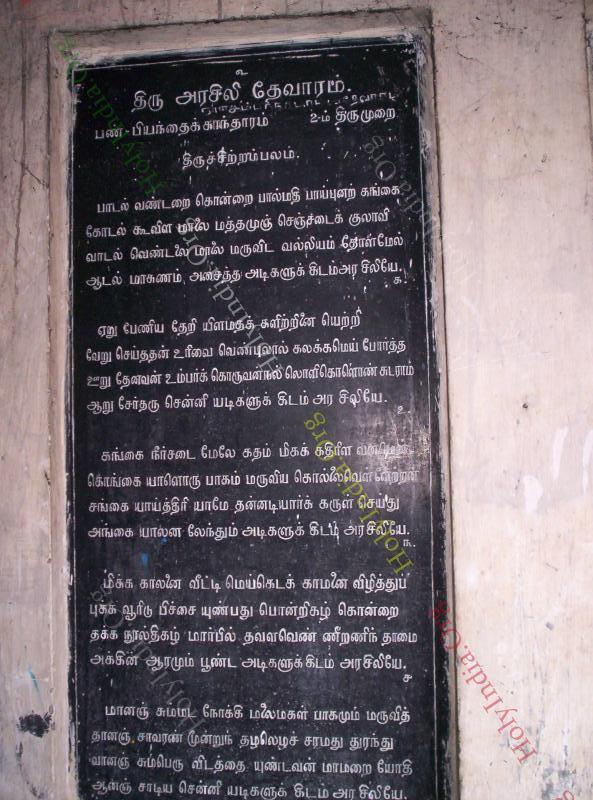 உ
திரு அரசிலி தேவாரம்.
பண-பியந்தைக்காந்தாரம் 2-ம் திருமுறை
திருச்சிற்றம்பலம்.
பாடல் வண்டறை கொன்றை பால்மதி பாய்புனற் கங்கை
கோடல் கூவிள மாலை மத்தமுஞ் செஞ்சடைக் குலாவி
வாடல் வெண்டலை மாலை மருவிட வல்லியம் தோள்மேல்
ஆடல் மாசுணம் அசைத்த அடிகளுக் கிடம்அர சிலியே.
க
ஏறு பேணிய தேறி யிளமதக் களிற்றினை யெற்றி
வேறு செய்ததன் உரிவை வெண்புலால் கலக்கமெய் போர்த்த
ஊறு தேனவன் உம்பர்க் கொருவனநல் லொளிகொளொண் சுடராம்
ஆறு சேர்தரு சென்னி யடிகளுக் கிடம் அர சிலியே.
உ
கங்கை நீர்சடை மேலே கதம் மிகக் கதிரிள
கொங்கை யாளொரு பாகம் மருவிய கொல்லைவெள்ளேற்றன்
சங்கை யாய்த்திரி யாமே தன்னடியார்க் கருள் செய்து
அங்கை யாலன லேந்தும் அடிகளுக் கிடம் அரசிலியே.
ங
மிக்க காலனை வீட்டி மெய்கெடக் காமனை விழித்துப்
புக்க வூரிடு பிச்சை யுண்பது பொன்றிகழ் கொன்றை
தக்க நூல்திகழ் மார்பில் தவளவெண் ணீறணிந் தாமை
அக்கின் ஆரமும் பூண்ட அடிகளுக்கிடம் அரசிலியே.
ச
மானஞ் சும்மட நோக்கி மலைமகள் பாகமும் மருவித்
தானஞ் சாவரண் மூன்றுந் தழலெழச் சரமது துரந்து
வானஞ் சும்பெரு விடத்தை யுண்டவன் மாமறை யோதி
ஆனஞ் சாடிய சென்னி யடிகளுக் கிடம் அரசிலியே.
HolyIndia.Org
HolyIndia.Org
HolyIndia.Org
HolyIndia.Org
HolyIndia.Org
HolyIndia.Org